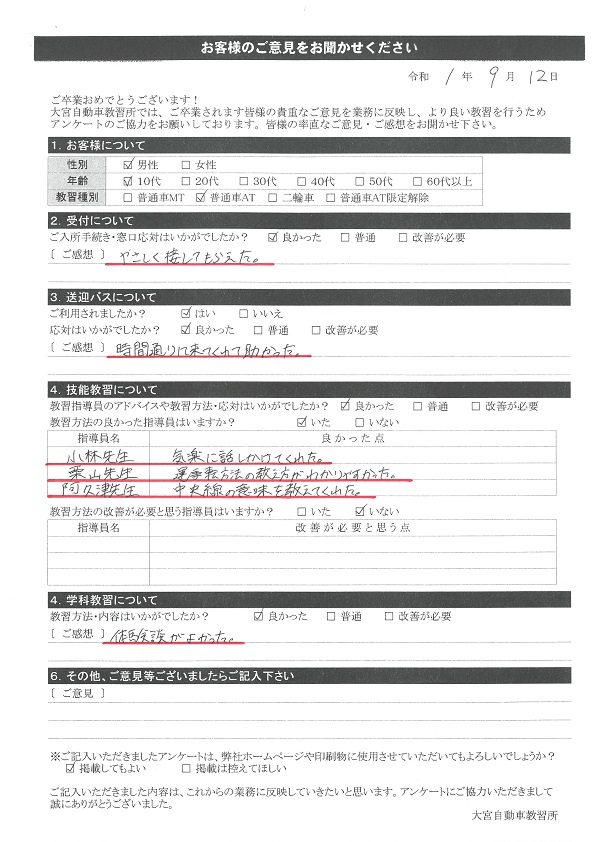 お客様のご意見をお聞かせください
令和 1年 9月 12日
ご卒業おめでとうございます！
大宮自動車教習所では、ご卒業されます皆様の貴重なご意見を業務に反映し、より良い教習を行うため
アンケートのご協力をお願いしております。皆様の率直なご意見・ご感想をお聞かせ下さい。
1. お客様について
性別 ☑ 男性 □ 女性
年齢 ☑ 10代 □ 20代 □ 30代 □ 40代 □ 50代 □ 60代以上
教習種別 □ 普通車MT ☑ 普通車AT □ 二輪車 □ 普通車AT限定解除
2. 受付について
ご入所手続き・窓口応対はいかがでしたか？ ☑ 良かった □ 普通 □ 改善が必要
〔 ご感想 〕 やさしく接してもらえた。
3. 送迎バスについて
ご利用されましたか？ ☑ はい □ いいえ
応対はいかがでしたか？ ☑ 良かった □ 普通 □ 改善が必要
〔 ご感想 〕 時間通りに来てくれて助かった。
4. 技能教習について
教習指導員のアドバイスや教習方法・応対はいかがでしたか？ ☑ 良かった □ 普通 □ 改善が必要
教習方法の良かった指導員はいますか？ ☑ いた □ いない
指導員名 良かった点
小林先生 気楽に話しかけてくれた。
栗山先生 運転方法の教え方がわかりやすかった。
阿久津先生 中央線の意味を教えてくれた。
教習方法の改善が必要と思う指導員はいますか？ □ いた ☑ いない
指導員名 改善が必要と思う点
4. 学科教習について
教習方法・内容はいかがでしたか？ ☑ 良かった □ 普通 □ 改善が必要
〔 ご感想 〕 体験談がよかった。
6. その他、ご意見等ございましたらご記入下さい
〔 ご意見 〕
※ご記入いただきましたアンケートは、弊社ホームページや印刷物に使用させていただいてもよろしいでしょうか？
☑ 掲載してもよい □ 掲載は控えてほしい
ご記入いただきました内容は、これからの業務に反映していきたいと思います。アンケートにご協力いただきまして
誠にありがとうございました。
大宮自動車教習所